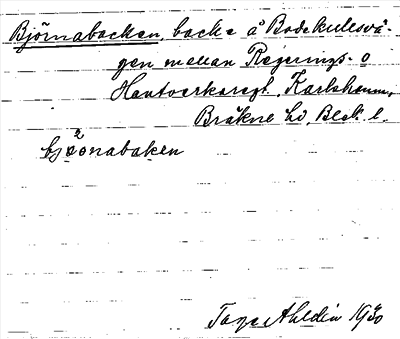 Björnabacken, backe å Bodekullsvä-
gen mellan Regerings- o
Hantverkaregt. Karlshamn,
Bräkne hd, Blek. l.
bjö̀onabaken
Tage Ahldén 1930